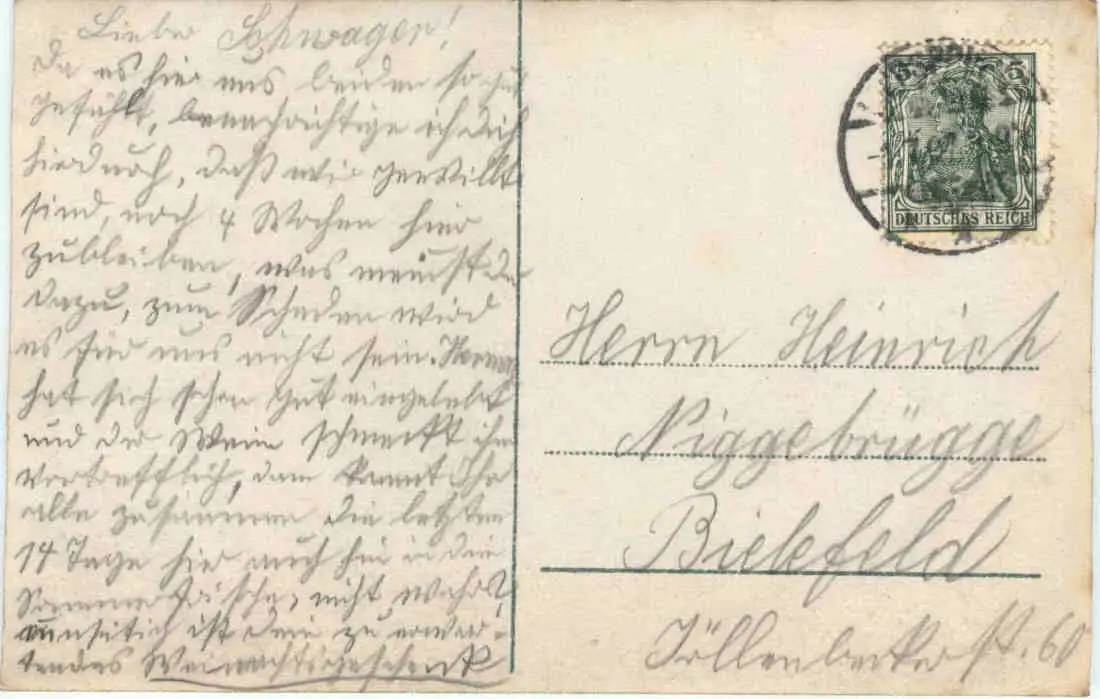 Lieber Schwager!
Da es hier uns beiden so gut
gefällt, benachrichtige ich dich
hierdurch, daß wir gewillt
sind, noch 4 Wochen hier
zubleiben, was meinst du
dazu, zum Schaden wird
es für uns nicht sein.
hat sich schon gut eingelebt
und der Wein schmeckt ihm
vortrefflich, dann kommt Ihr
alle zusammen die letzten
14 Tage hier auch hin in die
Sommerfrische, nicht wahr?
ist dein zu erwar-
tendes Weinachtsgeschenk
5 5
DEUTSCHES REICH
Herrn Heinrich
Niggebrügge
Bielefeld
Jöllenbeckerst. 60